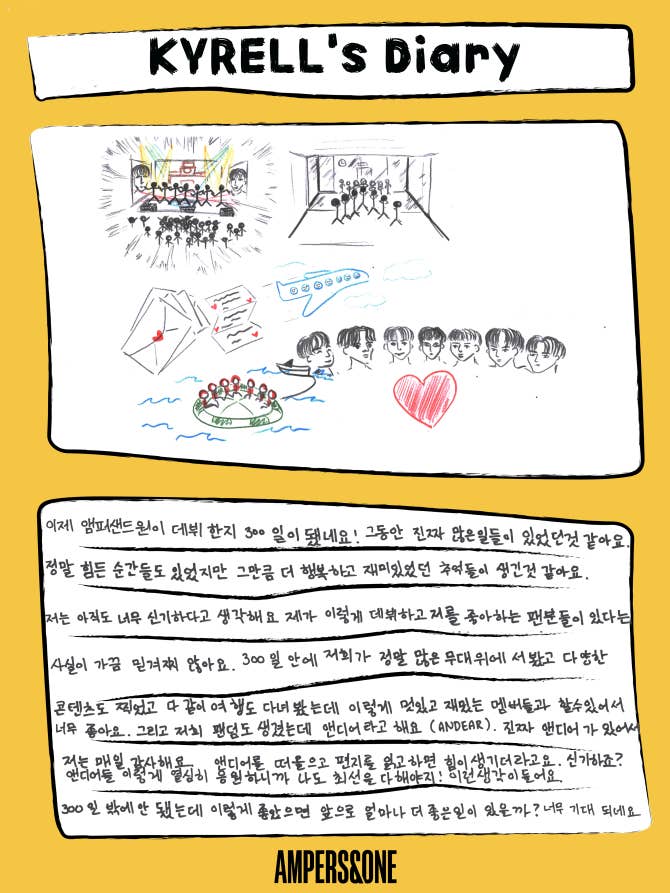 KYRELL's Diary
이제 앰퍼샌드원이 데뷔 한지 300 일이 됐네요! 그동안 진짜 많은일들이 있었던것 같아요.
정말 힘든 순간들도 있었지만 그만큼 더 행복하고 재미있었던 추억들이 생긴것 같아요.
저는 아직도 너무 신기하다고 생각해요 제가 이렇게 데뷔하고 저를 좋아하는 팬분들이 있다는
사실이 가끔 믿겨져지 않아요. 300 일 안에 저희가 정말 많은 무대위에 서 봤고 다양한
콘텐츠도 찍었고 다 같이 여행도 다녀 봤는데 이렇게 멋있고 재밌는 멤버들과 할수있어서
너무 좋아요. 그리고 저희 팬덤도 생겼는데 앤디어라고 해요 (ANDEAR). 진짜 앤디어가 있어서
저는 매일 감사해요. 앤디어를 떠올으고 편지를 읽고하면 힘이 생기더라고요. 신기하죠?
앤디어들 이렇게 열심히 응원하니까 나도 최선을 다해야지! 이런생각이들어요.
300 일 밖에안 됐는데 이렇게 좋았으면 앞으로 얼마나 더 좋은일이 있을까? 너무 기대 되네요
AMPERS&ONE